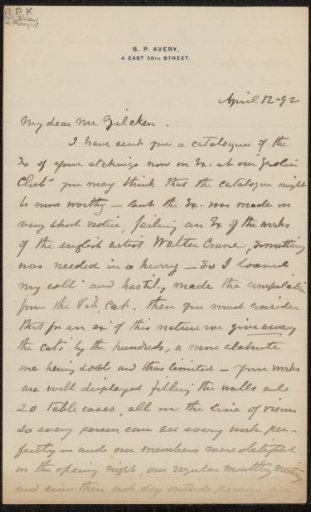 S. P. AVERY,
4 EAST 38TH STREET.
April 12-92
My dear Mr Zilcken.
I have sent you a catalogue of the
Ex of your etchings now on Ex. at our Grolier
Club - you may think that the catalogue might
be more worthy - but the Ex. was made on
very short notice, failing an Ex of the works
of the english artist Walter Crane, something
was needed in a hurry - So I loaned
my coll" and hastily made the compilation
from the Ptd. Cat. then you must consider
that for an ex" of this nature we give away
the cat's by the hundreds, a more elaborate
one being sold and thus limited - your works
are well displayed filling the walls and
20 table cases, all on the line of vision
so every person can see every work per-
fectly - and our members were delighted
on the opening night, our regular monthly meeting
and since then each day outside persons are